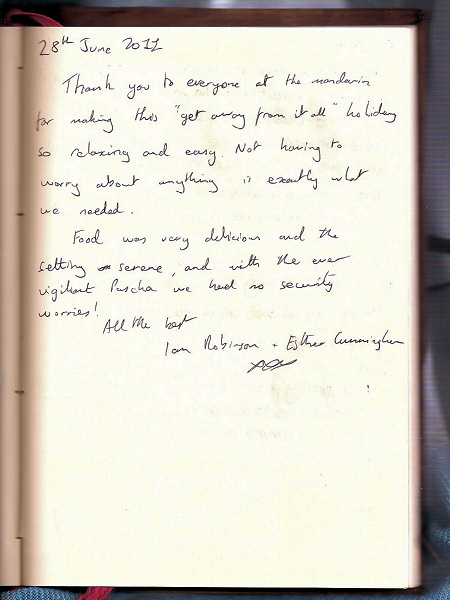 28th June 2011
Thank you to everyone at the mandarin
for making this "get away from it all" holiday
so relaxing and easy. Not having to
worry about anything is exactly what
we needed.
Food was very delicious and the
setting serene, and with the ever
vigilant Pascha we had no security
worries!
All the best
Ian Robinson + Esther Cunningham
xxx